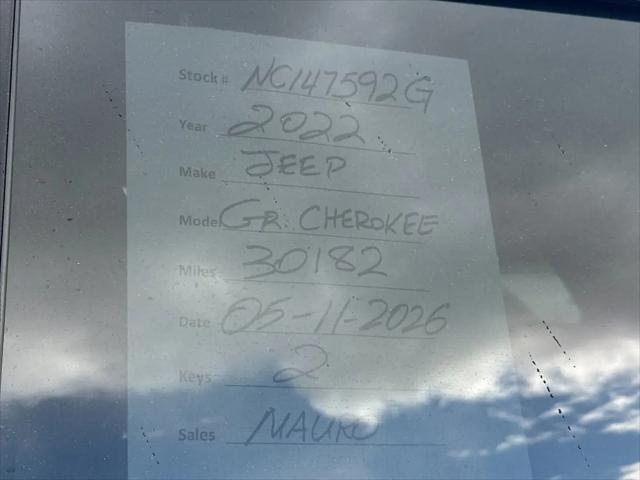 Stock # NC147592G
Year 2022
Make JEEP
Model GR. CHEROKEE
Miles 30182
Date 05-11-2026
Keys 2
Sales MAURO